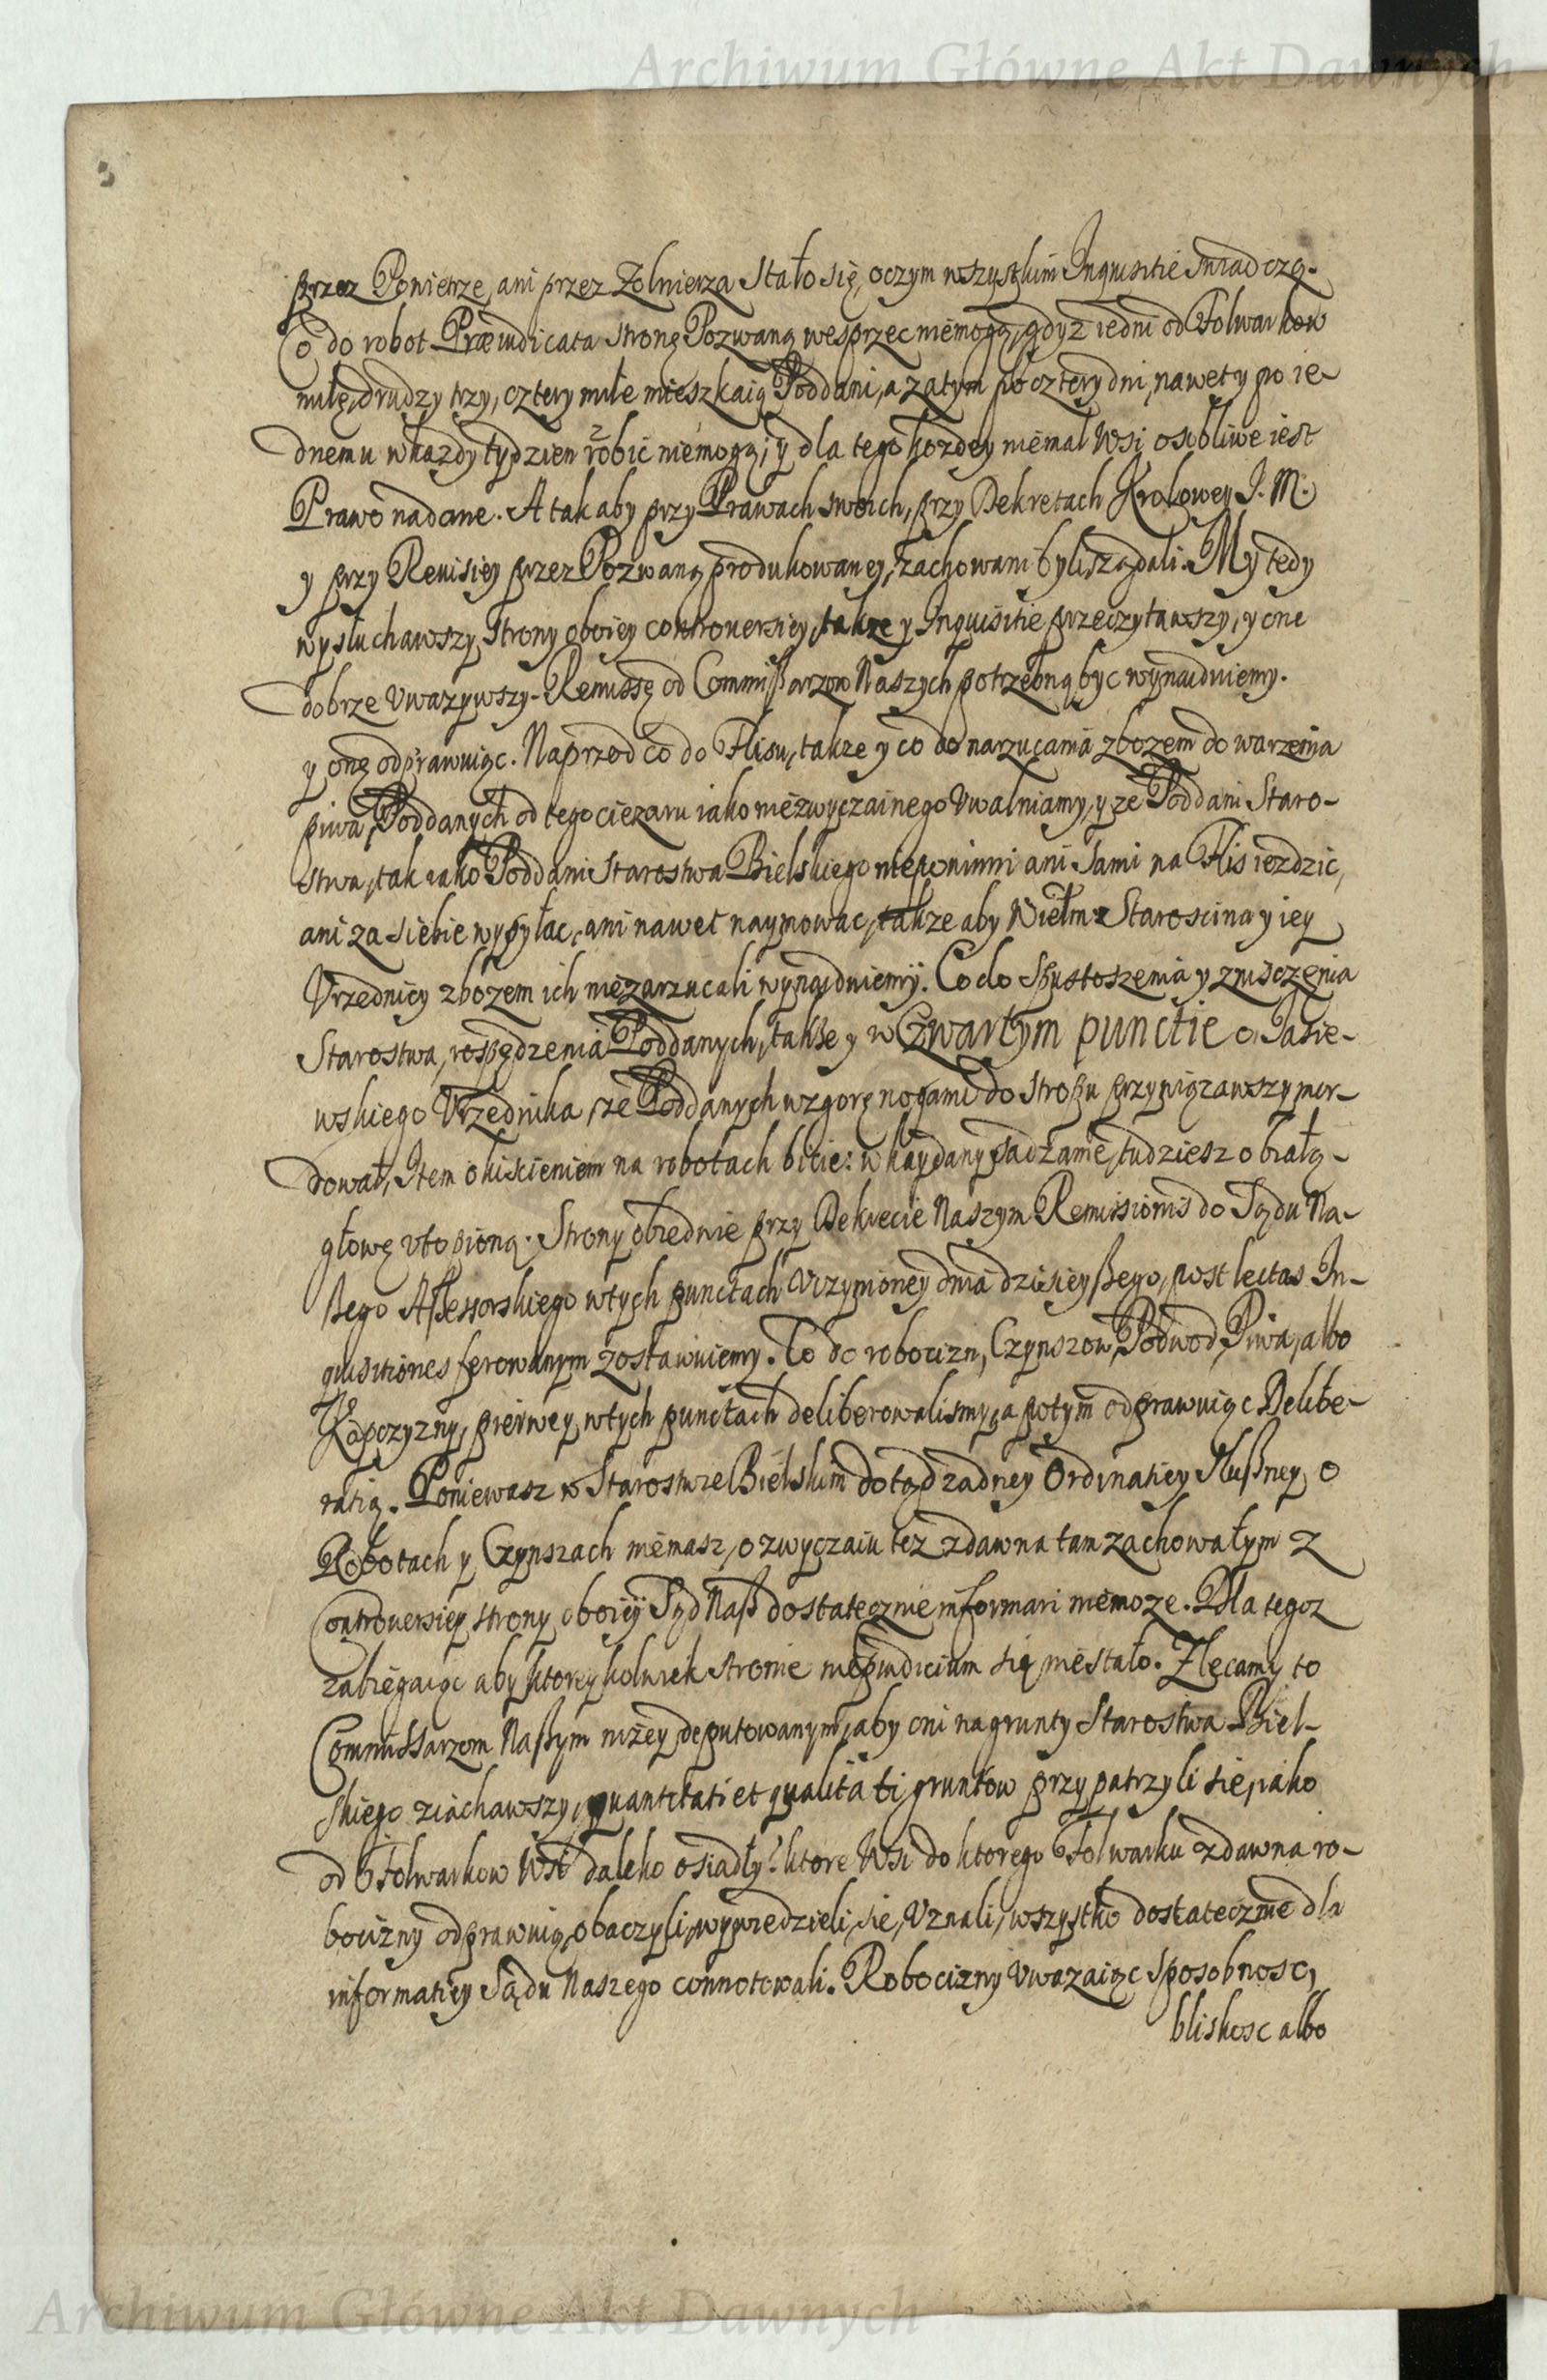 Archiwum Główne Akt Dawnych
3
przez Powietrze, ani przez Zolnierza Stało się, oczym wszystkim Inquisitie swiadczą.
Co do robot Præiudicata stronę Pozwaną wesprzec niemogą, gdyz iedni od Folwarkow
milę, drudzy trzy, cztery mile mieszkaią Poddani, a zatym po cztery dni, nawet y po ie-
dnemu wkazdy tydzien robic niemogą; y dla tego kozdey niemal Wsi osobliwe iest
Prawo nadane. A tak aby przy Prawach swoich, przy Dekretach Krolowey J. M.
y przy Rewisiey przez Pozwaną produkowaney, zachowani byli, ządali. My tedy
wysłuchawszy Strony oboiey controuersiey, takze y Inquisitie przeczytawszy, y one
dobrze Uwazywszy. Remissę od Commißarzow Naszych potrzebną byc wynaiduiemy.
y onę odprawuiąc. Naprzod co do Flisu, takze y co do narzucania zbozem do warzenia
piwa, Poddanych od tego ciezaru iako niezwyczainego Uwalniamy, y ze Poddani Staro-
stwa, tak iako Poddani Starostwa Bielskiego niepowinni ani Sami na Flis iezdzic,
ani za siebie wysyłac, ani nawet naymowac, takze aby Wielm. Starościna y iey
Urzednicy zbozem ich niezarzucali wynayduiemy. Co do Spustoszenia y zniszczenia
Starostwa, rospędzenia Poddanych, takze y w Czwartym punctie o Jasie-
wskiego Urzednika, ze Poddanych wzgorę nogami do stropu przywiązawszy mor-
dował, Item o kiscieniem na robotach bicie: w kaydany sadzanie, tudziesz o białą-
głowę utopioną. Strony obiedwie przy Dekrecie Naszym Remissionis do Sądu Na-
ßego Aßessorskiego wtych punctach Uczynioney dnia dzisieyßego, post lectas In-
quisitiones ferowanym zostawuiemy. Co do robocizn, Czynszow, Podwod, Piwa, albo
Kapczyzny, pierwey wtych punctach deliberowalismy, a potym odprawuiąc Delibe-
ratią. Poniewasz w Starostwie Bielskim dotąd zadney Ordinatiey Słußney o
Robotach y Czynszach niemasz, o zwyczaiu tez zdawna tam zachowałym z
Controuersiey strony oboiey Sąd Naß dostatecznie informari niemoze. Dla tegoz
zabiegaiąc aby ktoreykolwiek stronie nieiudicium się niestało. Zlecamy to
Commissarzom Naßym nizey deputowanym, aby oni na grunty Starostwa Biel-
skiego ziachawszy, quantitati et qualitati gruntow przypatrzyli sie, iako
od Folwarkow Wsi daleko osiadły? ktore Wsi do ktorego Folwarku zdawna ro-
bocizny odprawuią, obaczyli, wywiedzieli sie, Uznali, wszystko dostatecznie dla
informatiey Sądu Naszego connotowali. Robocizny Uwazaiąc sposobnosc,
bliskosc albo
Archiwum Główne Akt Dawnych